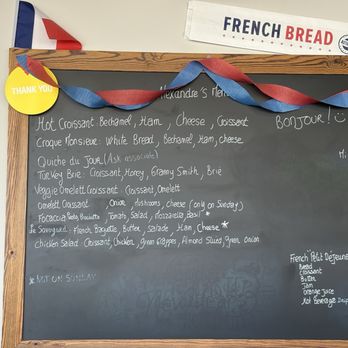 FRENCH BREAD
THANK YOU
Alexandre's Menu
BONJOUR!
Hot Croissant: Bechamel, Ham, Cheese, Croissant
Croque Monsieur: White Bread, Bechamel, Ham, cheese
Quiche du Jour (Ask associate)
Turkey Brie: Croissant, Honey, Granny Smith, Brie
Veggie Omelett Croissant: Croissant, Omelett
Omelett Croissant: Onion, Mushrooms, Cheese (only on Sunday)
Focaccia Pesto, Tomato, Salad, Mozzarella, Basil *
Le Savoyard: French Baguette, Butter, Salade, Ham, Cheese *
Chicken Salad: Croissant, Chicken, Green Grapes, Almond Sliced, Green Onion
* NOT ON SUNDAY
French Petit Dejeune
Bread
Croissant
Butter
Jam
Orange Juice
Hot Beverages